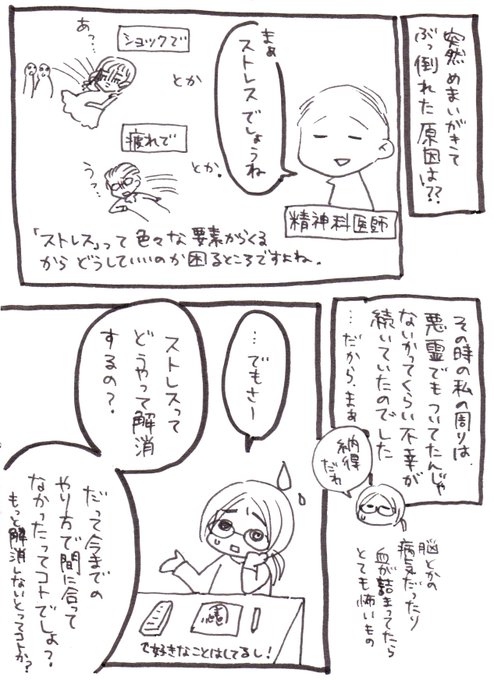 突然めまいがきて
ぶっ倒れた原因は??
まぁ
ストレスでしょうね
精神科医師
ショックで
あっ…
とか
疲れで
うっ…
とか。
「ストレス」って色々な要素がくる
からどうしていいのか困るところですよね。
その時の私の周りは、
悪霊でもついてたんじゃ
ないかってくらい不幸が
続いていたのでした
…だから、まぁ
納得
だわ
脳とかの
病気だったり
血が詰まってたら
とても怖いもの
…でもさー
ストレスって
どうやって解消
するの?
だって今までの
やり方で間に合って
なかったってコトでしょ?
もっと解消しないとってコトか?
で好きなことはしてるし!